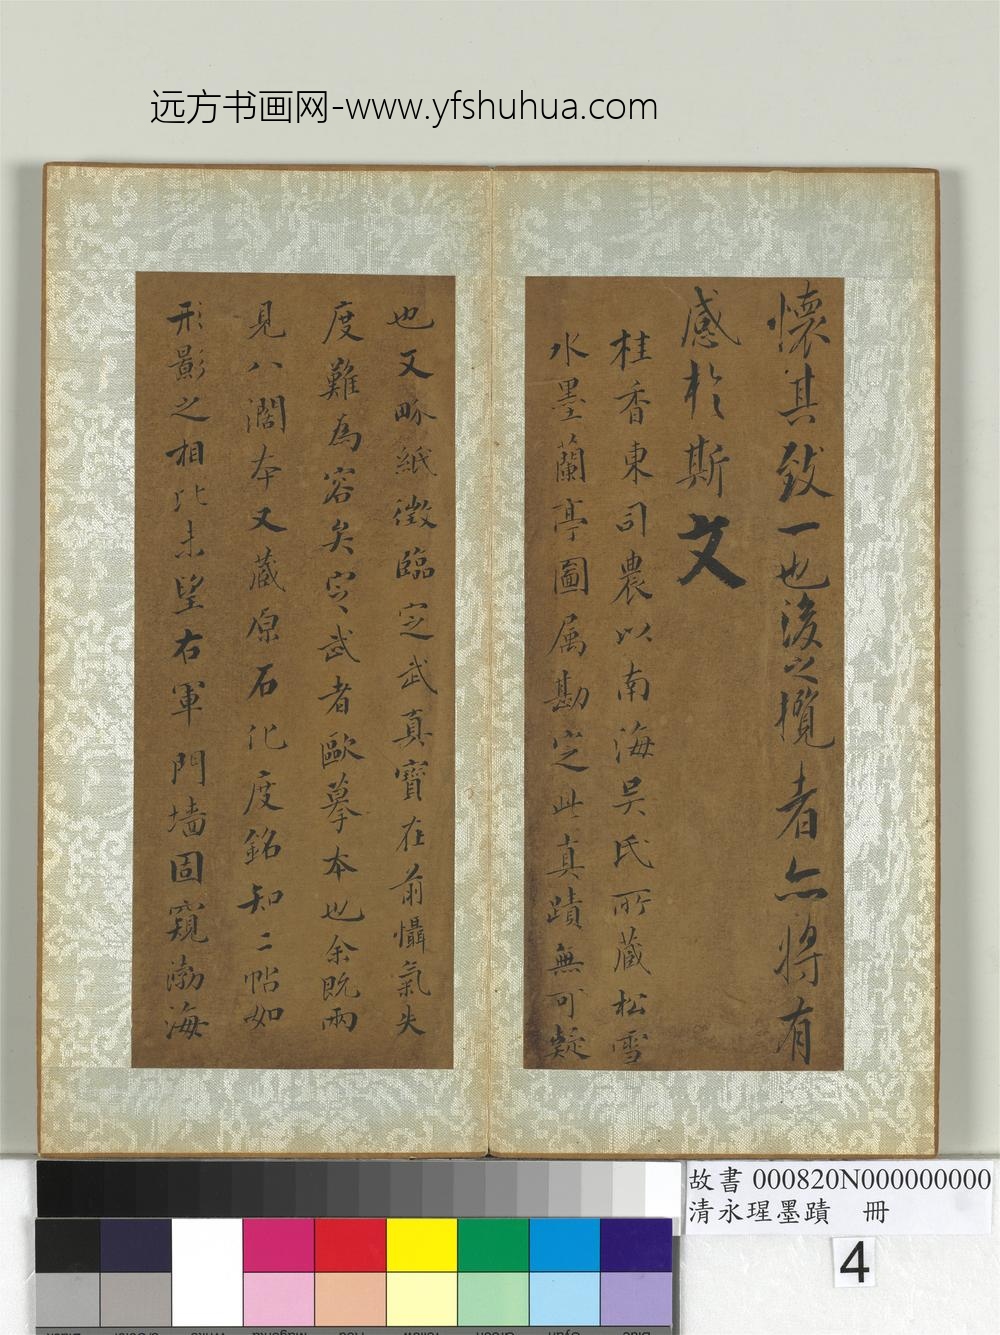 远方书画网-www.yfshuhua.com
懷其致一也後之攬者亦將有
感於斯文
桂香東司農以南海吳氏所藏松雪
水墨蘭亭圖属勘定此真蹟無可疑
也又畷紙徵臨定武真寶在前懾氣失
度難為容矣定武者歐摹本也余既兩
見八濶本又藏原石化度銘知二帖如
形影之相比未望右軍門墻固窺渤海
故書 000820N000000000
清永瑆墨蹟 冊
4